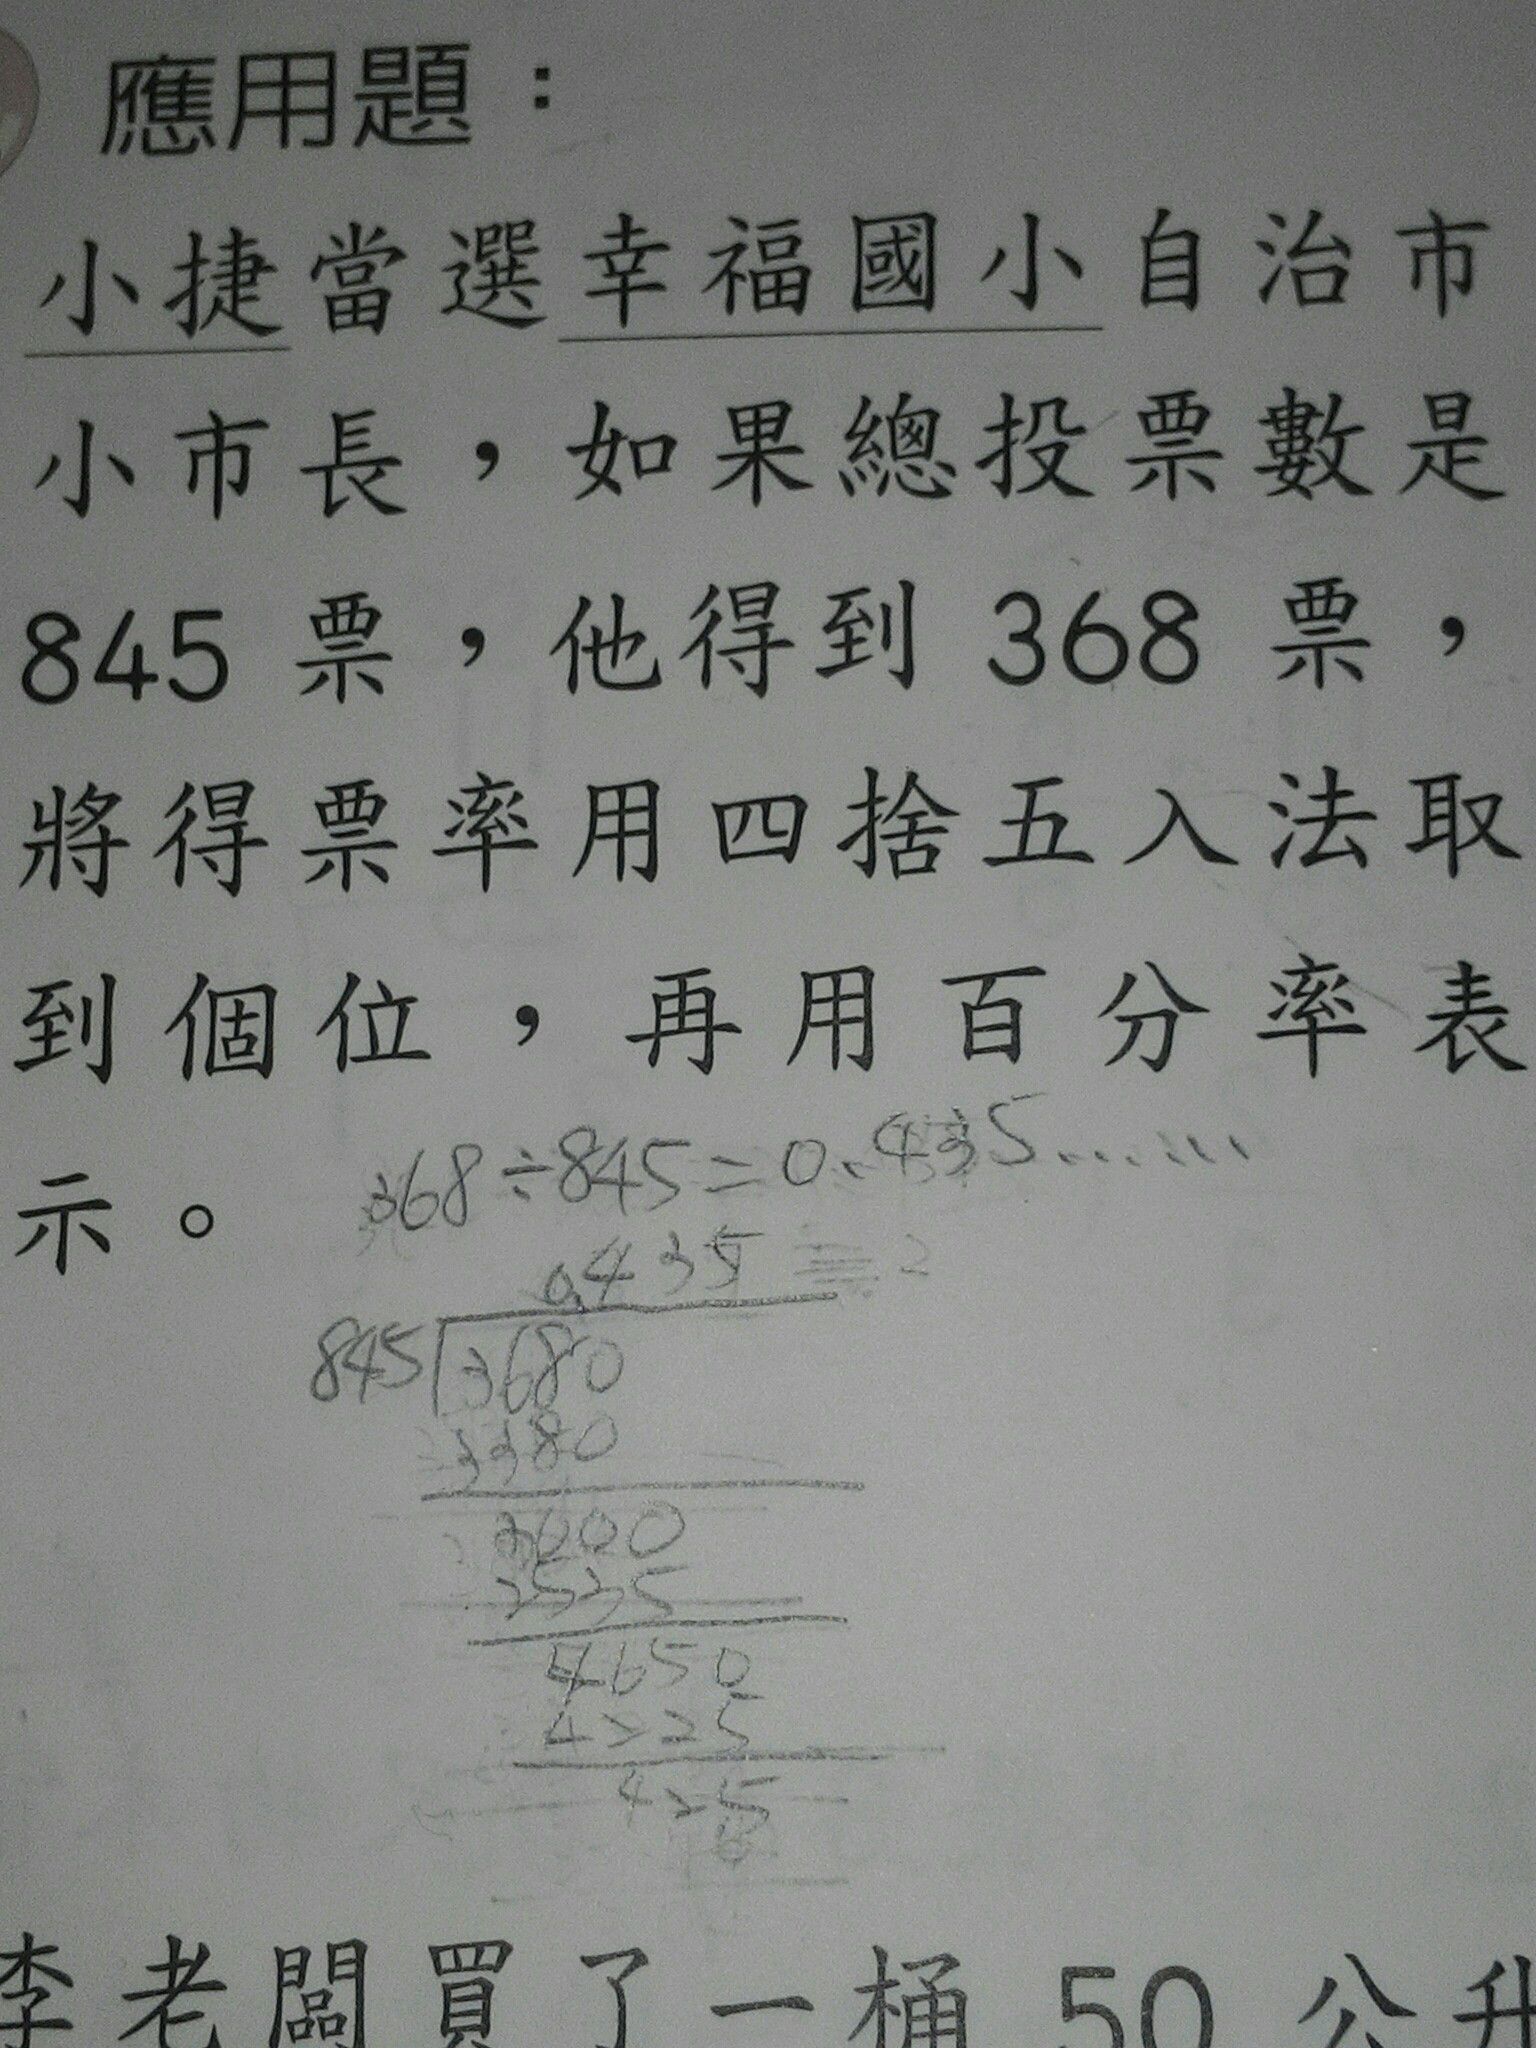 應用題：
小捷當選幸福國小自治市
小市長，如果總投票數是
845 票，他得到 368 票，
將得票率用四捨五入法取
到個位，再用百分率表
示。
368÷845=0.435……
0.435
845 3680
3380
3000
2535
4650
4225
425
李老闆買了一桶 50 公升